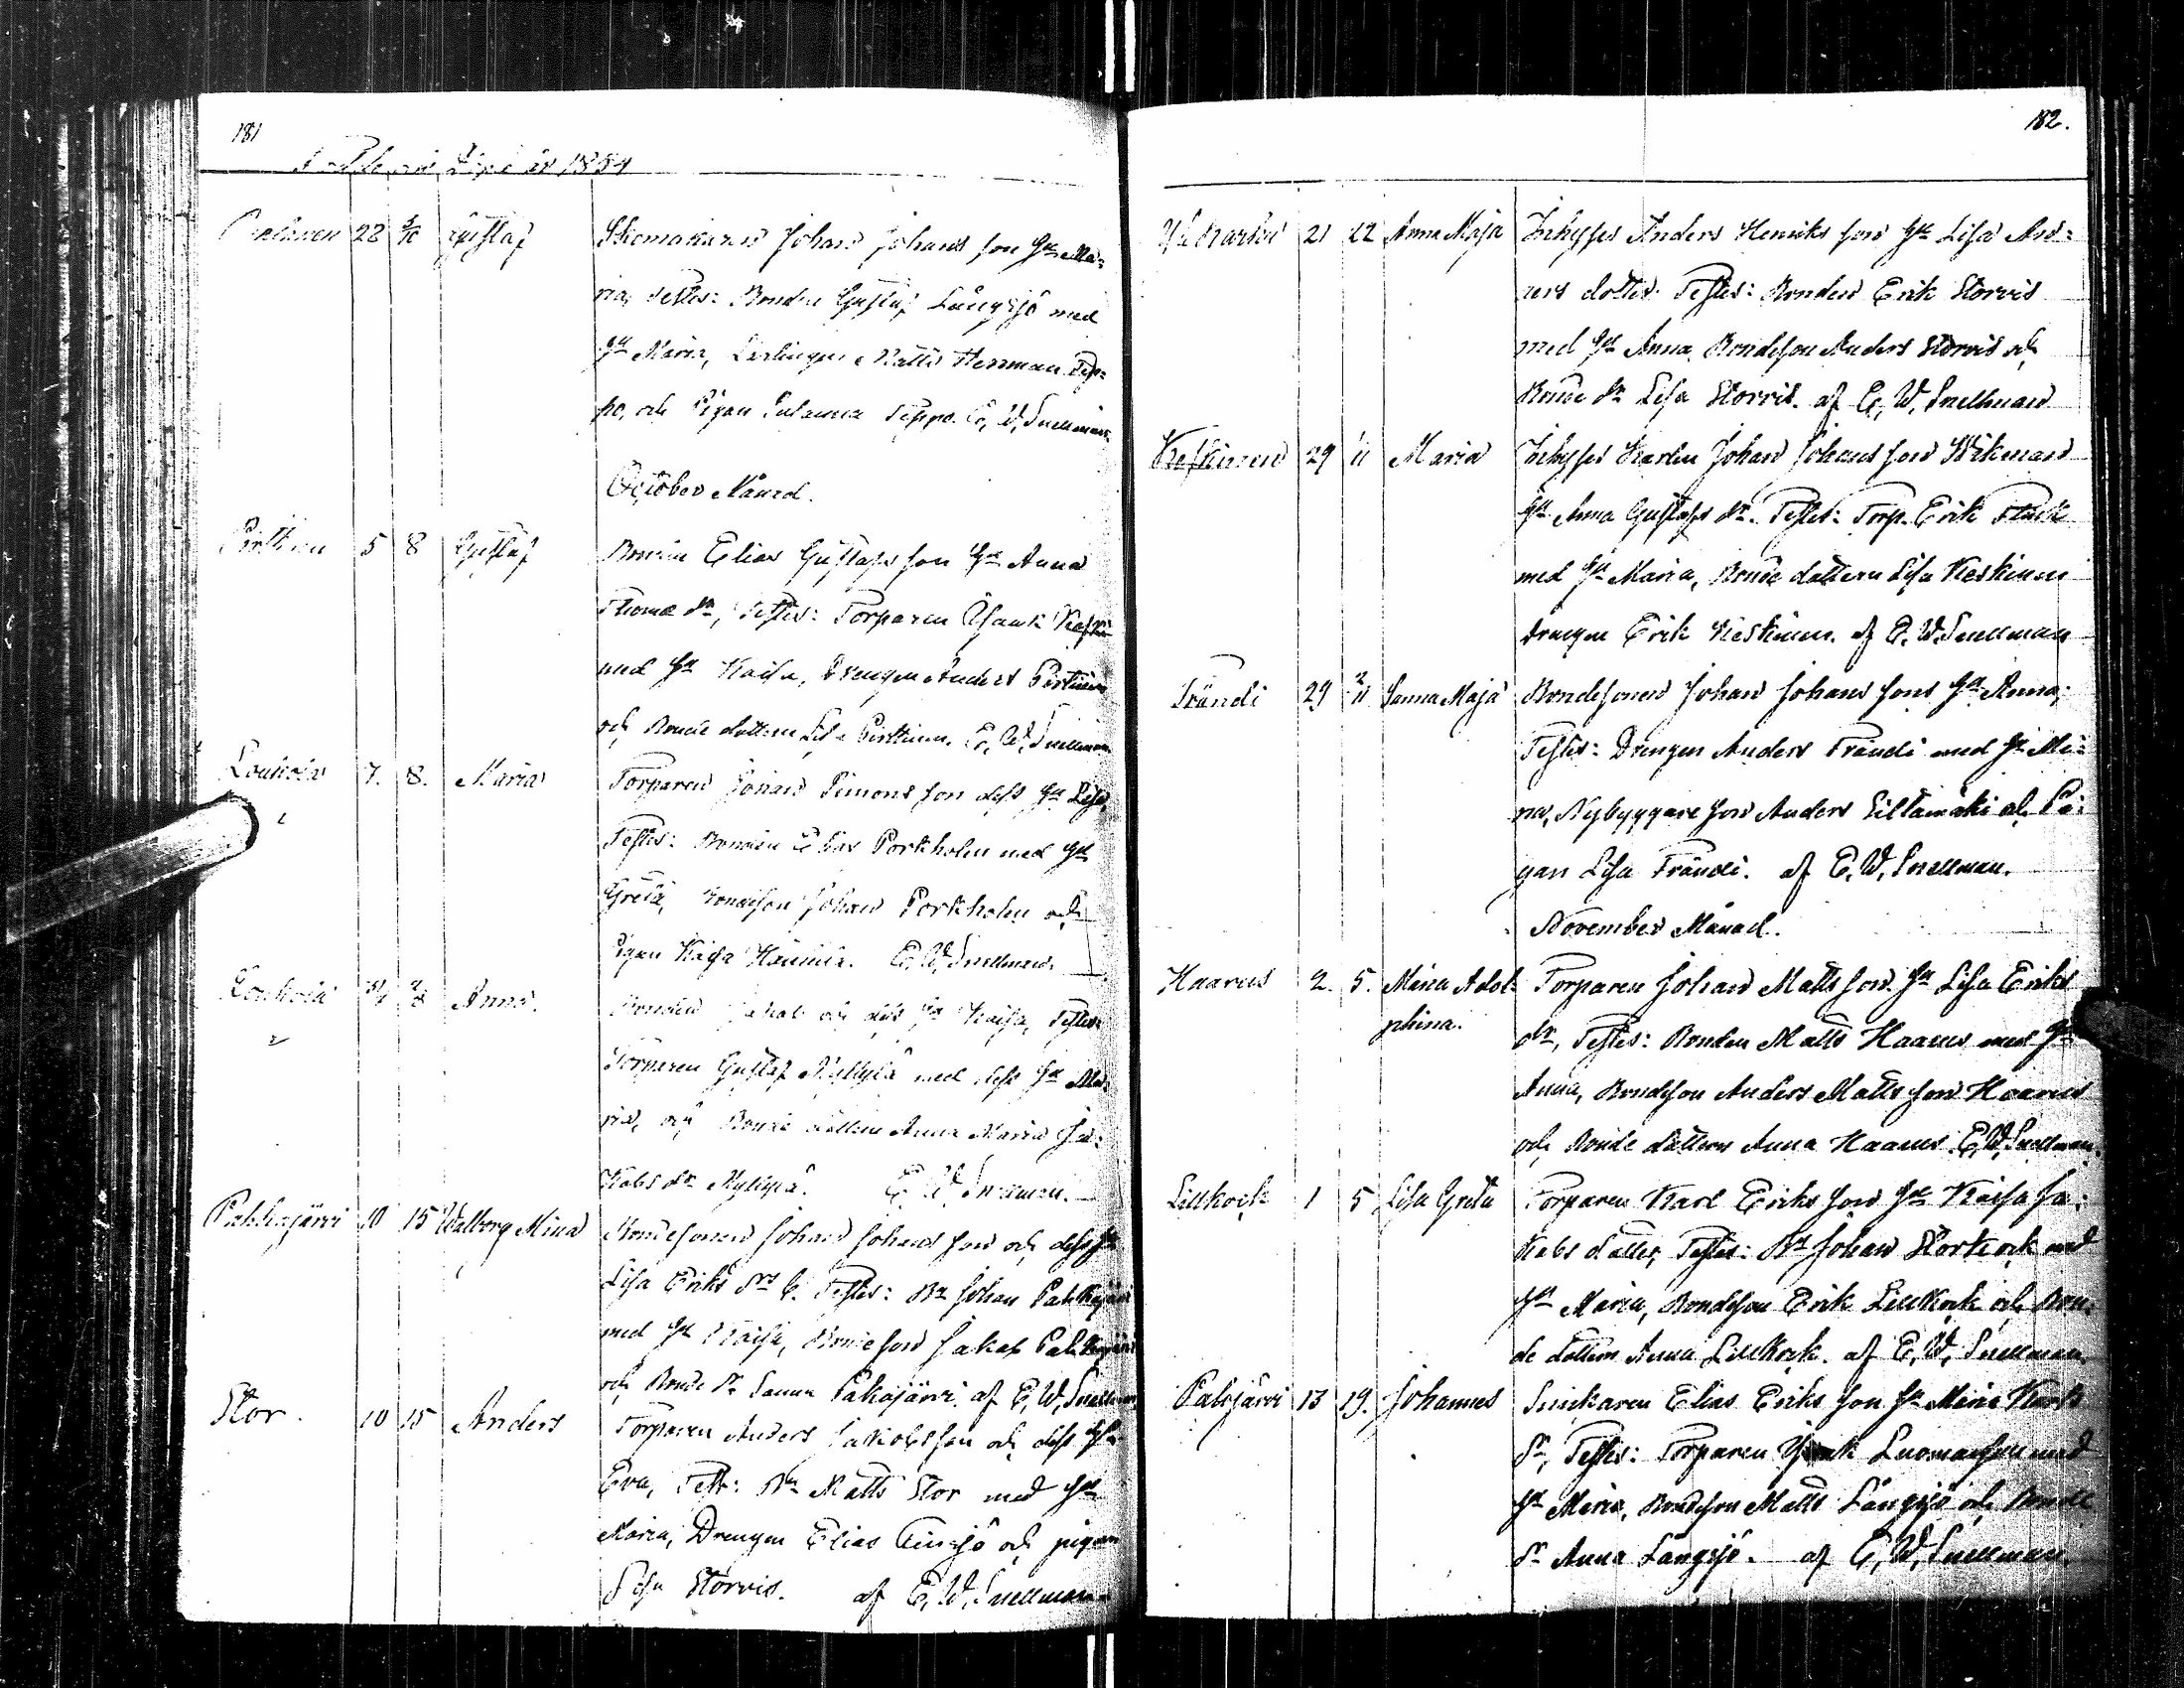 181
år 1854
28 5/10 Gustaf Skomakaren Johan Johans son Hu Ma=
ria, Testes: Bonden Gustaf Långsjö med
Hu Maria, Lärlingen Matts Herrman Sep=
po, och Pigan Seppo. E. W. Snellman
October Månad.
5 8 Gustaf Bonden Elias Gustafs son Hu Anna
Thomæ dr, Testes: Torparen Isaak
med Hu Kaisa, Drengen Anders Pirttinen
och Bonde dottern Lisa Pirttinen. E. W. Snellman
Loukola 7. 8. Maria Torparen Johan Simons son dess Hu Lisa,
Testes: Bonden Elias Porkholm med Hu
Greta, Bondeson Johan Porkholm och
Pigan Kaisa E. W. Snellman.
Loukola Anna. Bonden Jakob och dess Hu Kaisa, Testes:
Torparen Gustaf Nykylä med dess Hu Ma=
ria, och Bonde dottern Anna Maria Ja=
kobs dr Nykylä. E. W. Snellman.
Pakkajärvi 10 15 Walborg Mina Bondesonen Johan Johans son och dess Hu
Lisa Eriks dr Testes: Bn Johan Pakkajärvi
med Hu Kaisa, Bondeson Jakob Pakkajärvi
och Bonde dr Sanna Pakajärvi. af E. W. Snellman
Stor. 10 15 Anders Torparen Anders Jakobs son och dess Hu
Eva, Test: Bn Matts Stor med Hu
Maria, Drengen Elias och pigan
Lisa Storvis. af E. W. Snellman
182.
21 22 Anna Maja Inhyses Anders Henriks son Hu Lisa An=
ders dotter. Testes: Bonden Erik Storvis
med Hu Anna, Bondeson Anders Storvis och
Bonde dr Lisa Storvis. af E. W. Snellman
Keskinen 29 1/11 Maria Inhyses Karlen Johan Johans son Wikman
Hu Anna Gustafs dr. Testes: Torp. Erik
med Hu Maria, Bonde dottern Lisa Keskinen
Drengen Erik Keskinen. af E. W. Snellman
Frändi 29 2/11 Sanna Maja Bondesonen Johan Johans sons Hu Anna,
Testes: Drengen Anders Frändi med Hu Ma=
ria, Nybyggare son Anders och Pi=
gan Lisa Frändi. af E. W. Snellman.
November Månad.
Haarus 2. 5. Mina Adol=
phina. Torparen Johan Matts son Hu Lisa Eriks
dr, Testes: Bonden Matts Haarus med Hu
Anna, Bondeson Anders Matts son Haarus
och Bonde dottern Anna Haarus. E. W. Snellman.
Lillkock 1 5 Lisa Greta Torparen Karl Eriks son Hu Kaisa Ja=
kobs dotter, Testes: Bn Johan Storkock med
Hu Maria, Bondeson Erik Lillkock och Bon=
de dottern Anna Lillkock. af E. W. Snellman.
Pakajärvi 13 19. Johannes Snickaren Elias Eriks son Hu Maria Karls
dr, Testes: Torparen Isaak med
Hu Maria, Bondeson Matts Långsjö och Bonde
dr Anna Långsjö. af E. W. Snellman